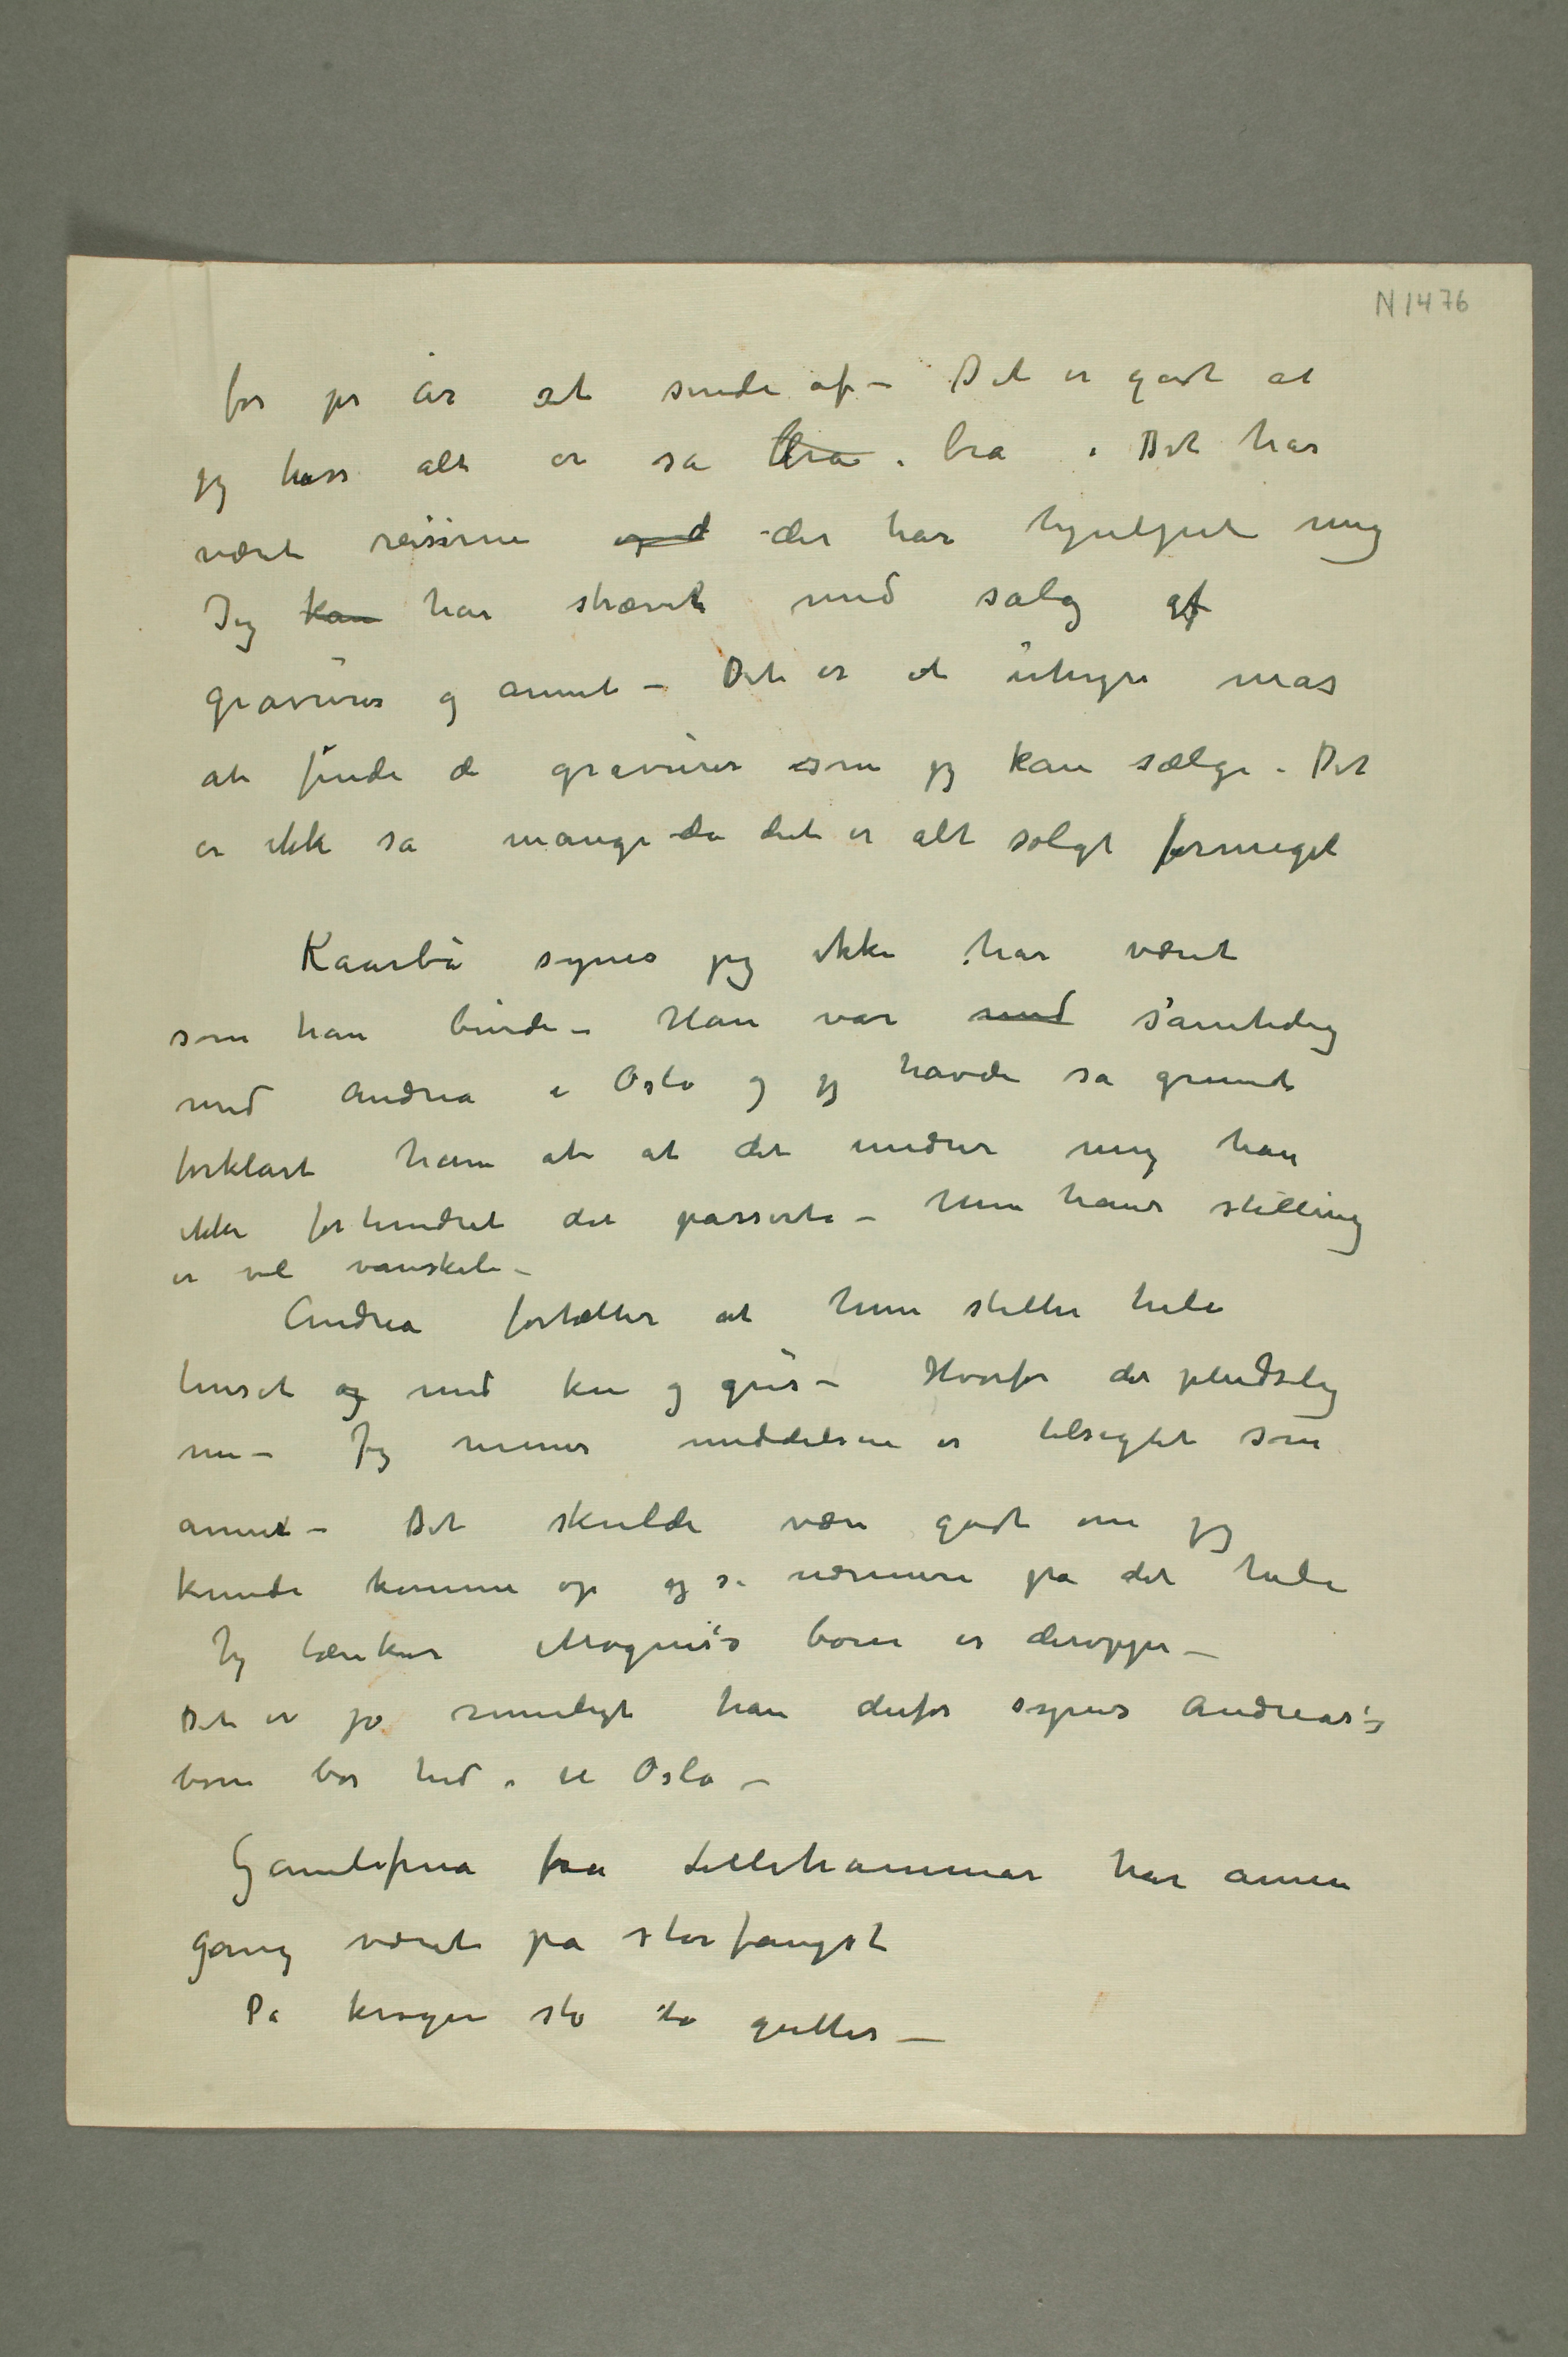 N 1476
for pr år at sende af – Det er godt at
jeg tross alt er så bra i bra i Det har
været reiserne og d der har hjulpet mig
Jeg kan har strævet med salg af
gravurer og annet – Det er et uhyre mas
at finde de gravurer som jeg kan sælge – Det
er ikke så mange da det er alt solgt formeget
Kaarbø synes jeg ikke har været
som han burde – Han var med samtidig
med Andrea i Oslo og jeg havde så grundt
forklart ham at at det undrer mig han
ikke forhindret det passerte – Men hans stilling
er vel vanskeli –
Andrea fortæller at hun steller hele
huset og med ku og gris – Hvorfor det pludselig
nu – Jeg mener meddelsen er tilsigtet som
annet – Det skulde være godt om jeg
kunde komme op og se nærmere på det hele
Jeg tænker Magnus's børn er deroppe –
Det er jo rimeligt han derfor synes Andreas's
børn bør hid i til Oslo –
Gamlefrua fra Lillehammer har annen
gang været på storfangst
På krogen sto to gutter –